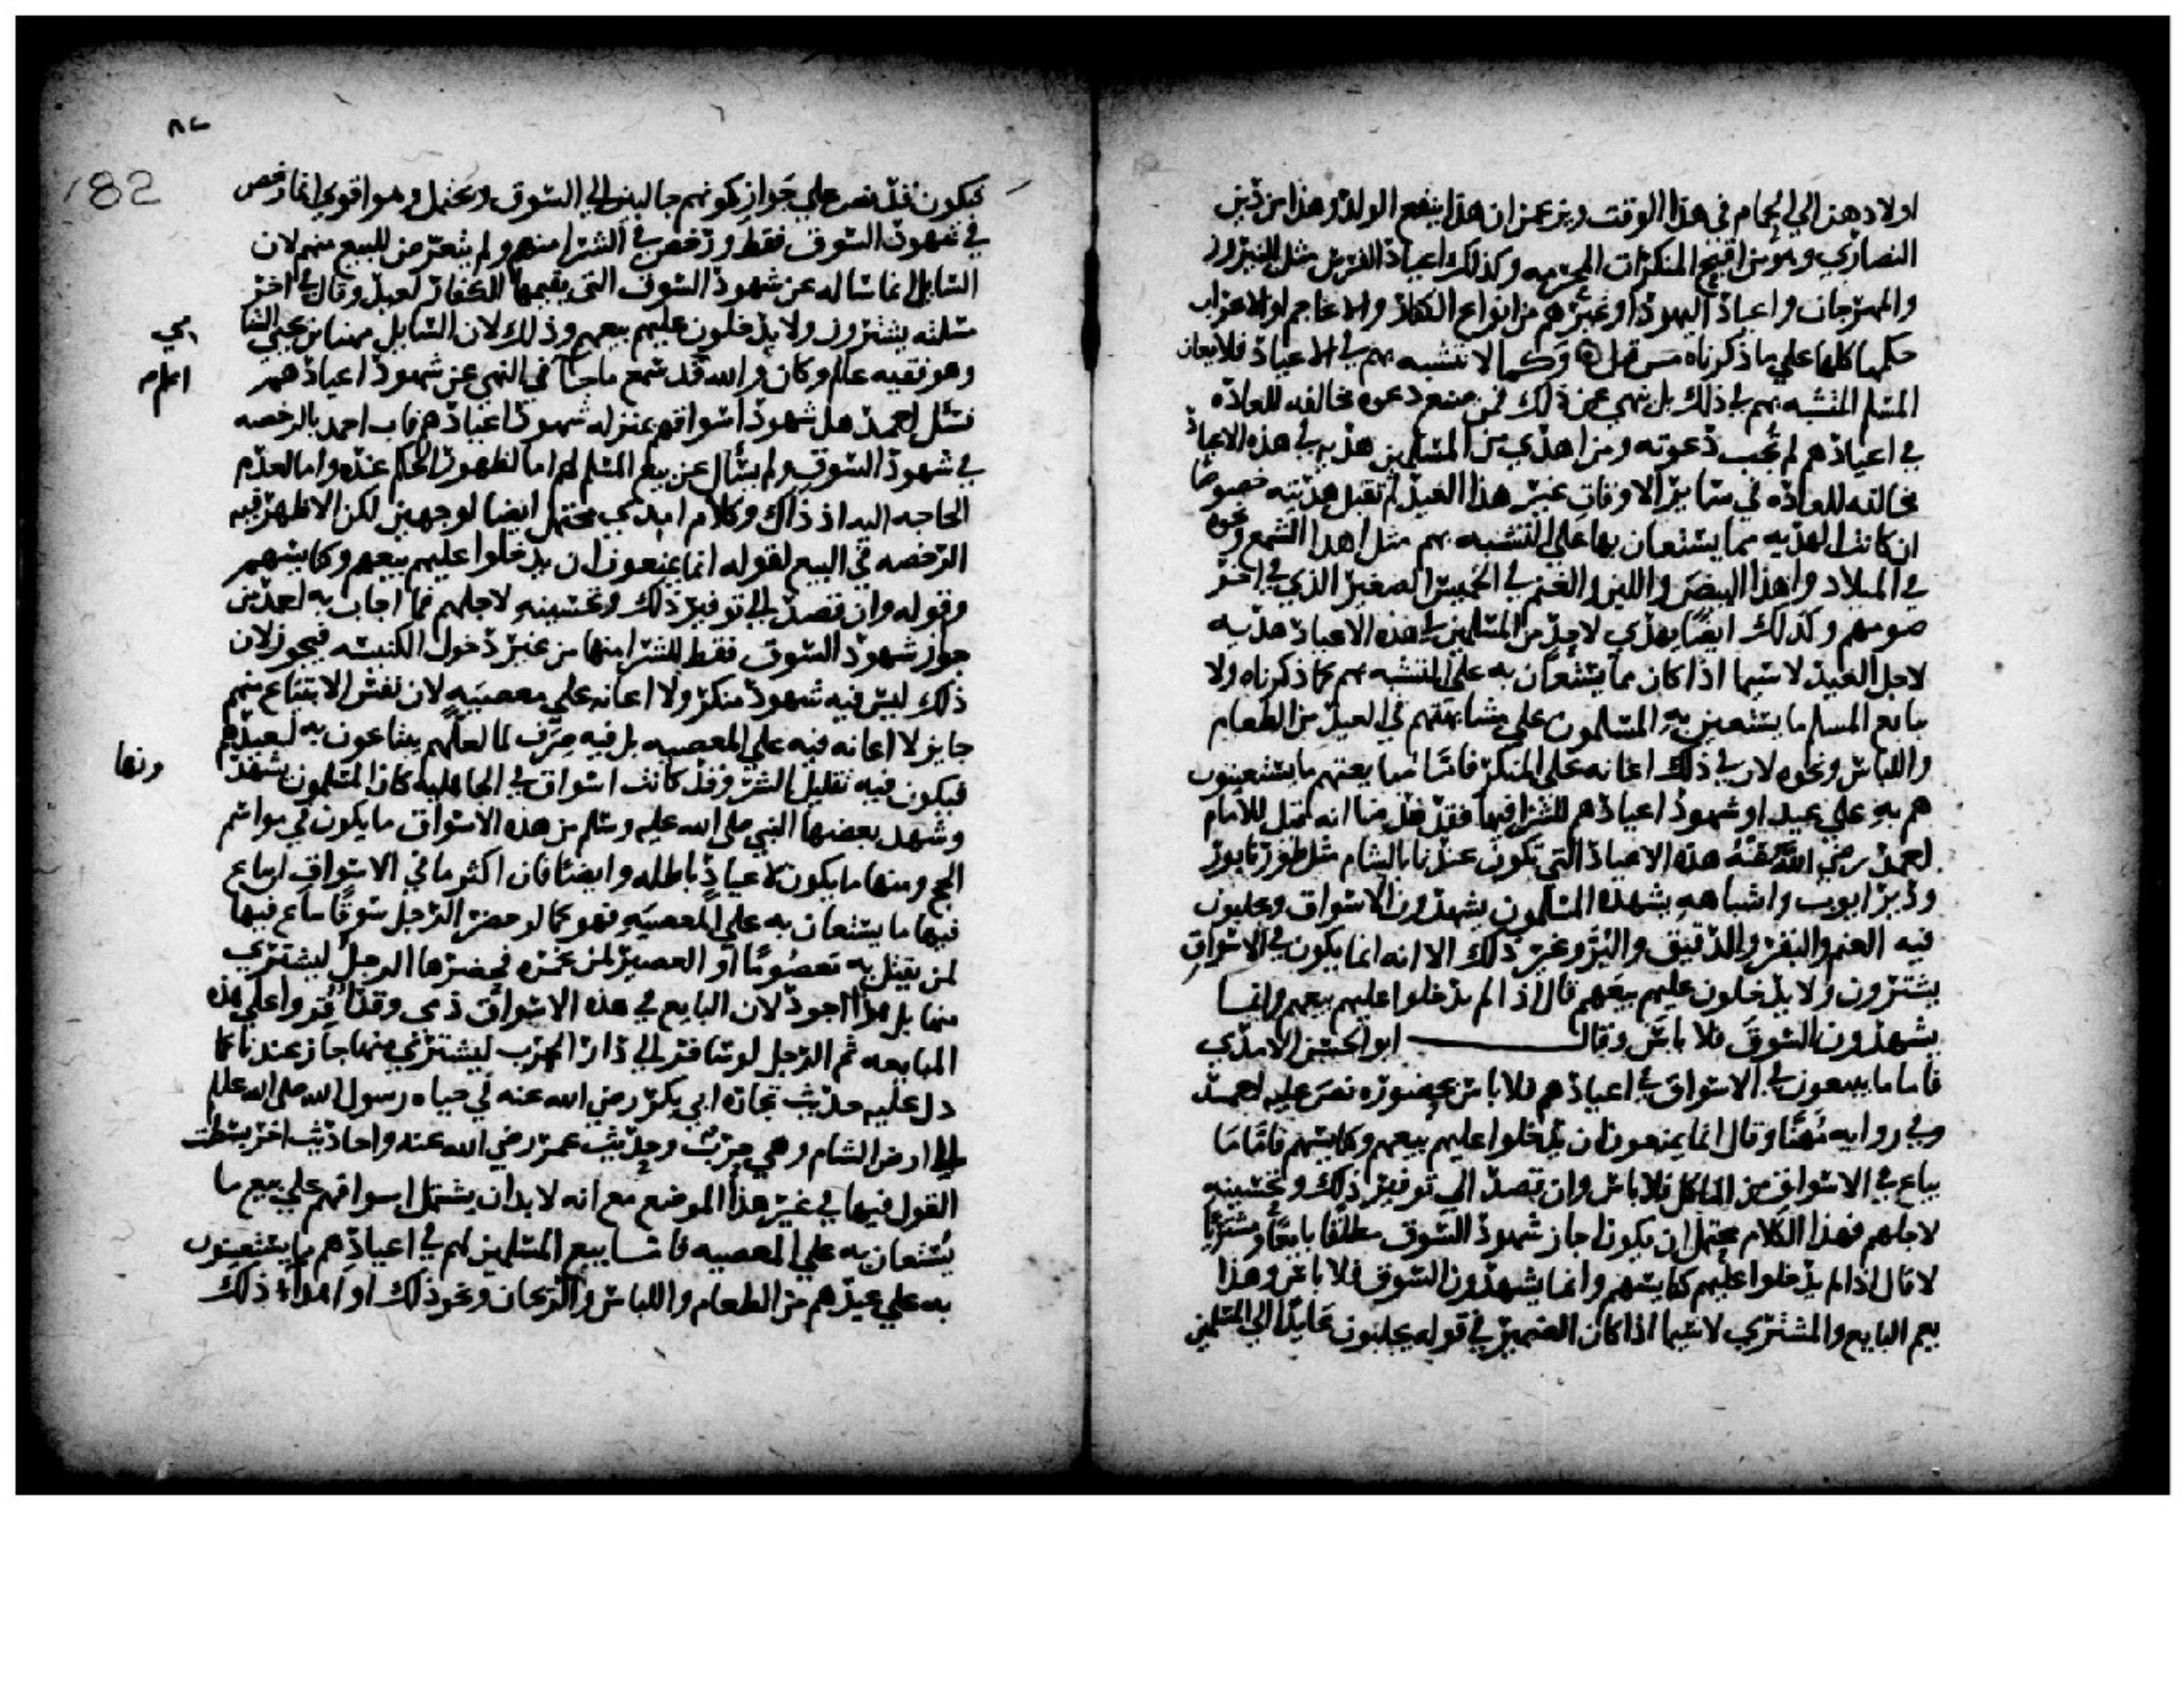 اولادهن الى الحمام في هذا الوقت ويزعمن ان هذا ينفع الولد وهذا من دين
النصارى وهو من اقبح المنكرات المحرمه وكذلك اعياد الفرس مثل النيروز
والمهرجان واعياد اليهود او غيرهم من انواع الكفار والاعاجم او الاعراب
حكمها كلها على ما ذكرناه من قبل وكما لا نتشبه بهم في الاعياد فلا يعان
المسلم المتشبه بهم في ذلك بل ينهى عن ذلك فمن صنع دعوه مخالفه للعاده
في اعيادهم لم تجب دعوته ومن اهدى من المسلمين هديه في هذه الاعياد
مخالفه للعاده في ساير الاوقات غير هذا العيد لم تقبل هديته خصوصا
ان كانت الهديه مما يستعان بها على التشبه بهم مثل اهدا الشمع ونحوه
في الميلاد واهدا البيض واللبن والغنم في الخميس الصغير الذي في اخر
صومهم وكذلك ايضا يهدى لاحد من المسلمين في هذه الاعياد هديه
لاجل العيد لا سيما اذا كان مما يستعان به على التشبه بهم كما ذكرناه ولا
يبايع المسلم ما يستعين به المسلمون على مشابهتهم في العيد من الطعام
واللباس ونحوه لان في ذلك اعانه على المنكر فاما مبايعتهم ما يستعينون
هم به على عيدهم او شهود اعيادهم للشرا فيها فقد قدمنا انه قيل للامام
احمد رضي الله عنه هذه الاعياد التي تكون عندنا بالشام مثل طور تابور
ودير ايوب واشباهه يشهده المسلمون يشهدون الاسواق ويجلبون
فيه الغنم والبقر والدقيق والبر وغير ذلك الا انه انما يكون في الاسواق
يشترون ولا يدخلون عليهم بيعهم قال اذا لم يدخلوا عليهم بيعهم وانما
يشهدون السوق فلا باس وقال ابو الحسن الامدي
فاما ما يبيعون في الاسواق في اعيادهم فلا باس بحضوره نص عليه احمد
في روايه مهنا وقال انما يمنعون ان يدخلوا عليهم بيعهم وكنايسهم فاما ما
يباع في الاسواق من الماكل فلا باس وان قصد الى توفير ذلك وتحسينه
لاجلهم فهذا الكلام محتمل ان يكون اجاز شهود السوق مطلقا بايعا ومشتريا
لا قال اذا لم يدخلوا عليهم كنايسهم وانما يشهدون السوق فلا باس وهذا
يعم البايع والمشتري لا سيما اذا كان الضمير في قوله يجلبون عايدا الى المسلمين
٨٢
182
فيكون قد نص على جواز كونهم جالبين الى السوق ويحتمل وهو اقوى انما رخص
في شهود السوق فقط ورخص في الشرا منهم ولم يتعرض للبيع منهم لان
السايل انما ساله عن شهود السوق التي يقيمها الكفار لعيدهم وقال في اخر
مسلته يشترون ولا يدخلون عليهم بيعهم وذلك لان السايل مهنا بن يحيى الشا
مي
وهو فقيه عالم وكان والله قد سمع ما جا في النهي عن شهود اعيادهم
اعلم
فسئل احمد هل شهود اسواقهم بمنزله شهود اعيادهم فاجاب احمد بالرخصه
في شهود السوق ولم يسال عن بيع المسلم لهم اما لظهور الحكم عنده واما لعدم
الحاجه اليه اذ ذاك وكلام الامدي محتمل ايضا لوجهين لكن الاظهر فيه
الرخصه في البيع لقوله انما يمنعون ان يدخلوا عليهم بيعهم وكنايسهم
وقوله وان قصد الى توفير ذلك وتحسينه لاجلهم فما اجاب به احمد من
جواز شهود السوق فقط للشرا منها من غير دخول الكنيسه فيجوز لان
ذلك ليس فيه شهود منكر ولا اعانه على معصيه لان نفس الابتياع منهم
جايز لا اعانه فيه على المعصيه بل فيه صرف لما لعلهم يبتاعون به لعيدهم
فيكون فيه تقليل الشر وقد كانت اسواق في الجاهليه كان المسلمون يشهد
ونها
وشهد بعضها النبي صلى الله عليه وسلم من هذه الاسواق ما يكون في مواسم
الحج ومنها ما يكون لاعياد باطله وايضا فان اكثر ما في الاسواق ان يباع
فيها ما يستعان به على المعصيه فهو كما لو حضر الرجل سوقا يباع فيها
لمن يقتل به معصوما او العصير لمن يخمره فحضرها الرجل ليشتري
منها بل هذا اجود لان البايع في هذه الاسواق ذمي وقد اقروا على هذه
المبايعه ثم الرجل لو سافر الى دار الحرب ليشتري منها جاز عندنا كما
دل عليه حديث تجارة ابي بكر رضي الله عنه في حياه رسول الله صلى الله عليه
الى ارض الشام وهي حرب وحديث عمر رضي الله عنه واحاديث اخر بسطت
القول فيها في غير هذا الموضع مع انه لا بد ان يشتمل اسواقهم على بيع ما
يستعان به على المعصيه فاما بيع المسلمين لهم في اعيادهم ما يستعينون
به على عيدهم من الطعام واللباس والريحان ونحو ذلك او اهداء ذلك